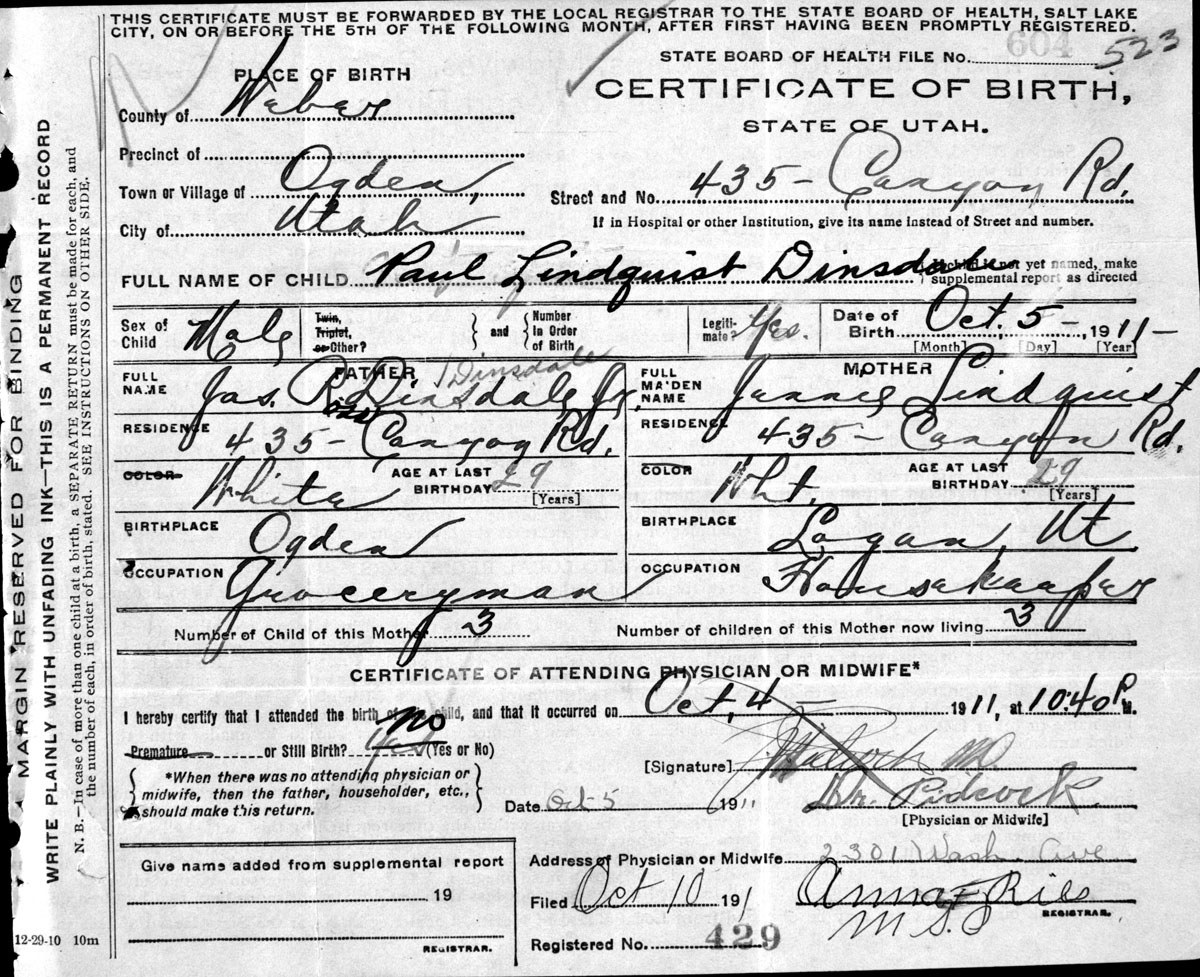 THIS CERTIFICATE MUST BE FORWARDED BY THE LOCAL REGISTRAR TO THE STATE BOARD OF HEALTH, SALT LAKE
CITY, ON OR BEFORE THE 5TH OF THE FOLLOWING MONTH, AFTER FIRST HAVING BEEN PROMPTLY REGISTERED.
604
STATE BOARD OF HEALTH FILE No. 523
PLACE OF BIRTH
CERTIFICATE OF BIRTH,
County of Weber
STATE OF UTAH.
Precinct of
Town or Village of Ogden,
Street and No. 435 - Canyon Rd.
City of Utah
If in Hospital or other Institution, give its name instead of Street and number.
FULL NAME OF CHILD Paul Lindquist Dinsdale
If child is not yet named, make
supplemental report as directed
Sex of Child Male
Twin, Triplet, or Other?
and
Number In Order of Birth
Legiti-mate? Yes.
Date of Birth Oct. 5 - 1911 -
[Month] [Day] [Year]
FATHER Dinsdale
FULL NAME Jas. R. Dinsdale Jr.
RESIDENCE 435 - Canyon Rd.
COLOR White
AGE AT LAST BIRTHDAY 29 [Years]
BIRTHPLACE Ogden
OCCUPATION Groceryman
MOTHER
FULL MAIDEN NAME Jennie Lindquist
RESIDENCE 435 - Canyon Rd.
COLOR Wht.
AGE AT LAST BIRTHDAY 29 [Years]
BIRTHPLACE Logan, Ut
OCCUPATION Housekeeper
Number of Child of this Mother 3
Number of children of this Mother now living 3
CERTIFICATE OF ATTENDING PHYSICIAN OR MIDWIFE*
I hereby certify that I attended the birth of this child, and that it occurred on Oct, 4 - 1911, at 10:40 P M.
Premature or Still Birth? no (Yes or No)
*When there was no attending physician or
midwife, then the father, householder, etc.,
should make this return.
[Signature] M.D.
Date Oct 5 1911
Dr. Pidcock
[Physician or Midwife]
Give name added from supplemental report
19
REGISTRAR.
Address of Physician or Midwife 2301 Wash. Ave
Filed Oct 10 191 Anna F Ries
REGISTRAR.
Registered No. 429
12-29-10 10m
MARGIN RESERVED FOR BINDING
WRITE PLAINLY WITH UNFADING INK—THIS IS A PERMANENT RECORD
N. B.—In case of more than one child at a birth, a SEPARATE RETURN must be made for each, and
the number of each, in order of birth, stated. SEE INSTRUCTIONS ON OTHER SIDE.